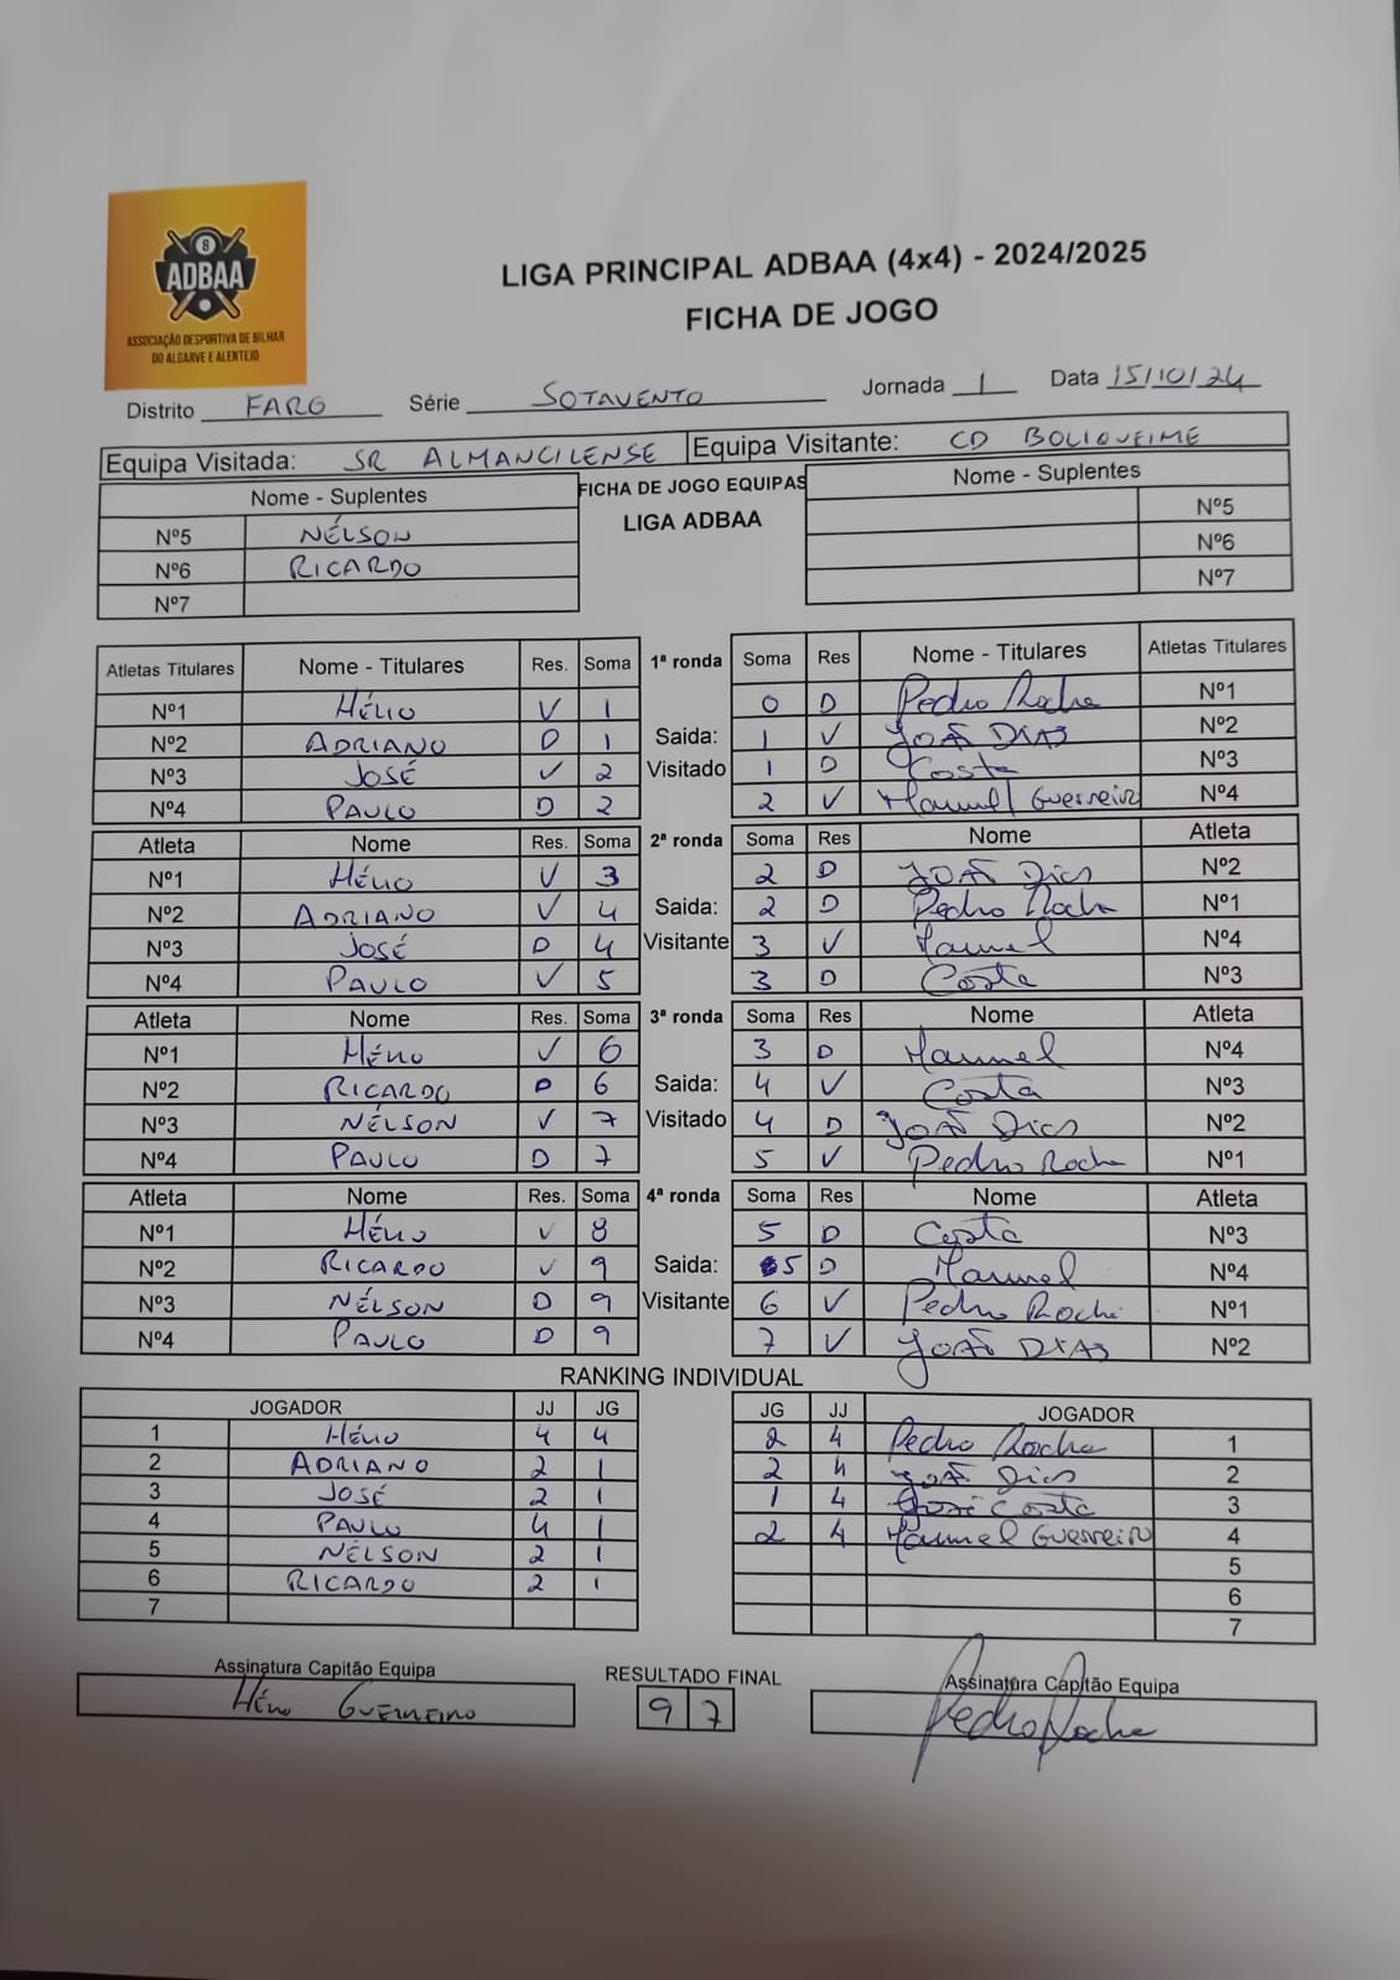 8
ADBAA
ASSOCIAÇÃO DESPORTIVA DE BILHAR
DO ALGARVE E ALENTEJO
LIGA PRINCIPAL ADBAA (4x4) - 2024/2025
FICHA DE JOGO
Distrito FARO Série SOTAVENTO Jornada 1 Data 15/10/24
Equipa Visitada: SR ALMANCILENSE Equipa Visitante: CD BOLIQUEIME
Nome - Suplentes FICHA DE JOGO EQUIPAS Nome - Suplentes
LIGA ADBAA
Nº5 NÉLSON Nº5
Nº6 RICARDO Nº6
Nº7 Nº7
Atletas Titulares Nome - Titulares Res. Soma 1ª ronda Soma Res Nome - Titulares Atletas Titulares
Nº1 HÉLIO V 1 0 D Pedro Rocha Nº1
Nº2 ADRIANO D 1 Saida: 1 V JOÃO DIAS Nº2
Nº3 JOSÉ V 2 Visitado 1 D Costa Nº3
Nº4 PAULO D 2 2 V Manuel Guerreiro Nº4
Atleta Nome Res. Soma 2ª ronda Soma Res Nome Atleta
Nº1 HÉLIO V 3 2 D JOÃO Dias Nº2
Nº2 ADRIANO V 4 Saida: 2 D Pedro Rocha Nº1
Nº3 JOSÉ D 4 Visitante 3 V Manuel Nº4
Nº4 PAULO V 5 3 D Costa Nº3
Atleta Nome Res. Soma 3ª ronda Soma Res Nome Atleta
Nº1 HÉLIO V 6 3 D Manuel Nº4
Nº2 RICARDO D 6 Saida: 4 V Costa Nº3
Nº3 NÉLSON V 7 Visitado 4 D JOÃO Dias Nº2
Nº4 PAULO D 7 5 V Pedro Rocha Nº1
Atleta Nome Res. Soma 4ª ronda Soma Res Nome Atleta
Nº1 HÉLIO V 8 5 D Costa Nº3
Nº2 RICARDO V 9 Saida: 5 D Manuel Nº4
Nº3 NÉLSON D 9 Visitante 6 V Pedro Rocha Nº1
Nº4 PAULO D 9 7 V JOÃO DIAS Nº2
RANKING INDIVIDUAL
JOGADOR JJ JG JG JJ JOGADOR
1 HÉLIO 4 4 2 4 Pedro Rocha 1
2 ADRIANO 2 1 2 4 JOÃO Dias 2
3 JOSÉ 2 1 1 4 José Costa 3
4 PAULO 4 1 2 4 Manuel Guerreiro 4
5 NÉLSON 2 1 5
6 RICARDO 2 1 6
7 7
Assinatura Capitão Equipa RESULTADO FINAL Assinatura Capitão Equipa
Hélio GUERREIRO 9 7 Pedro Rocha